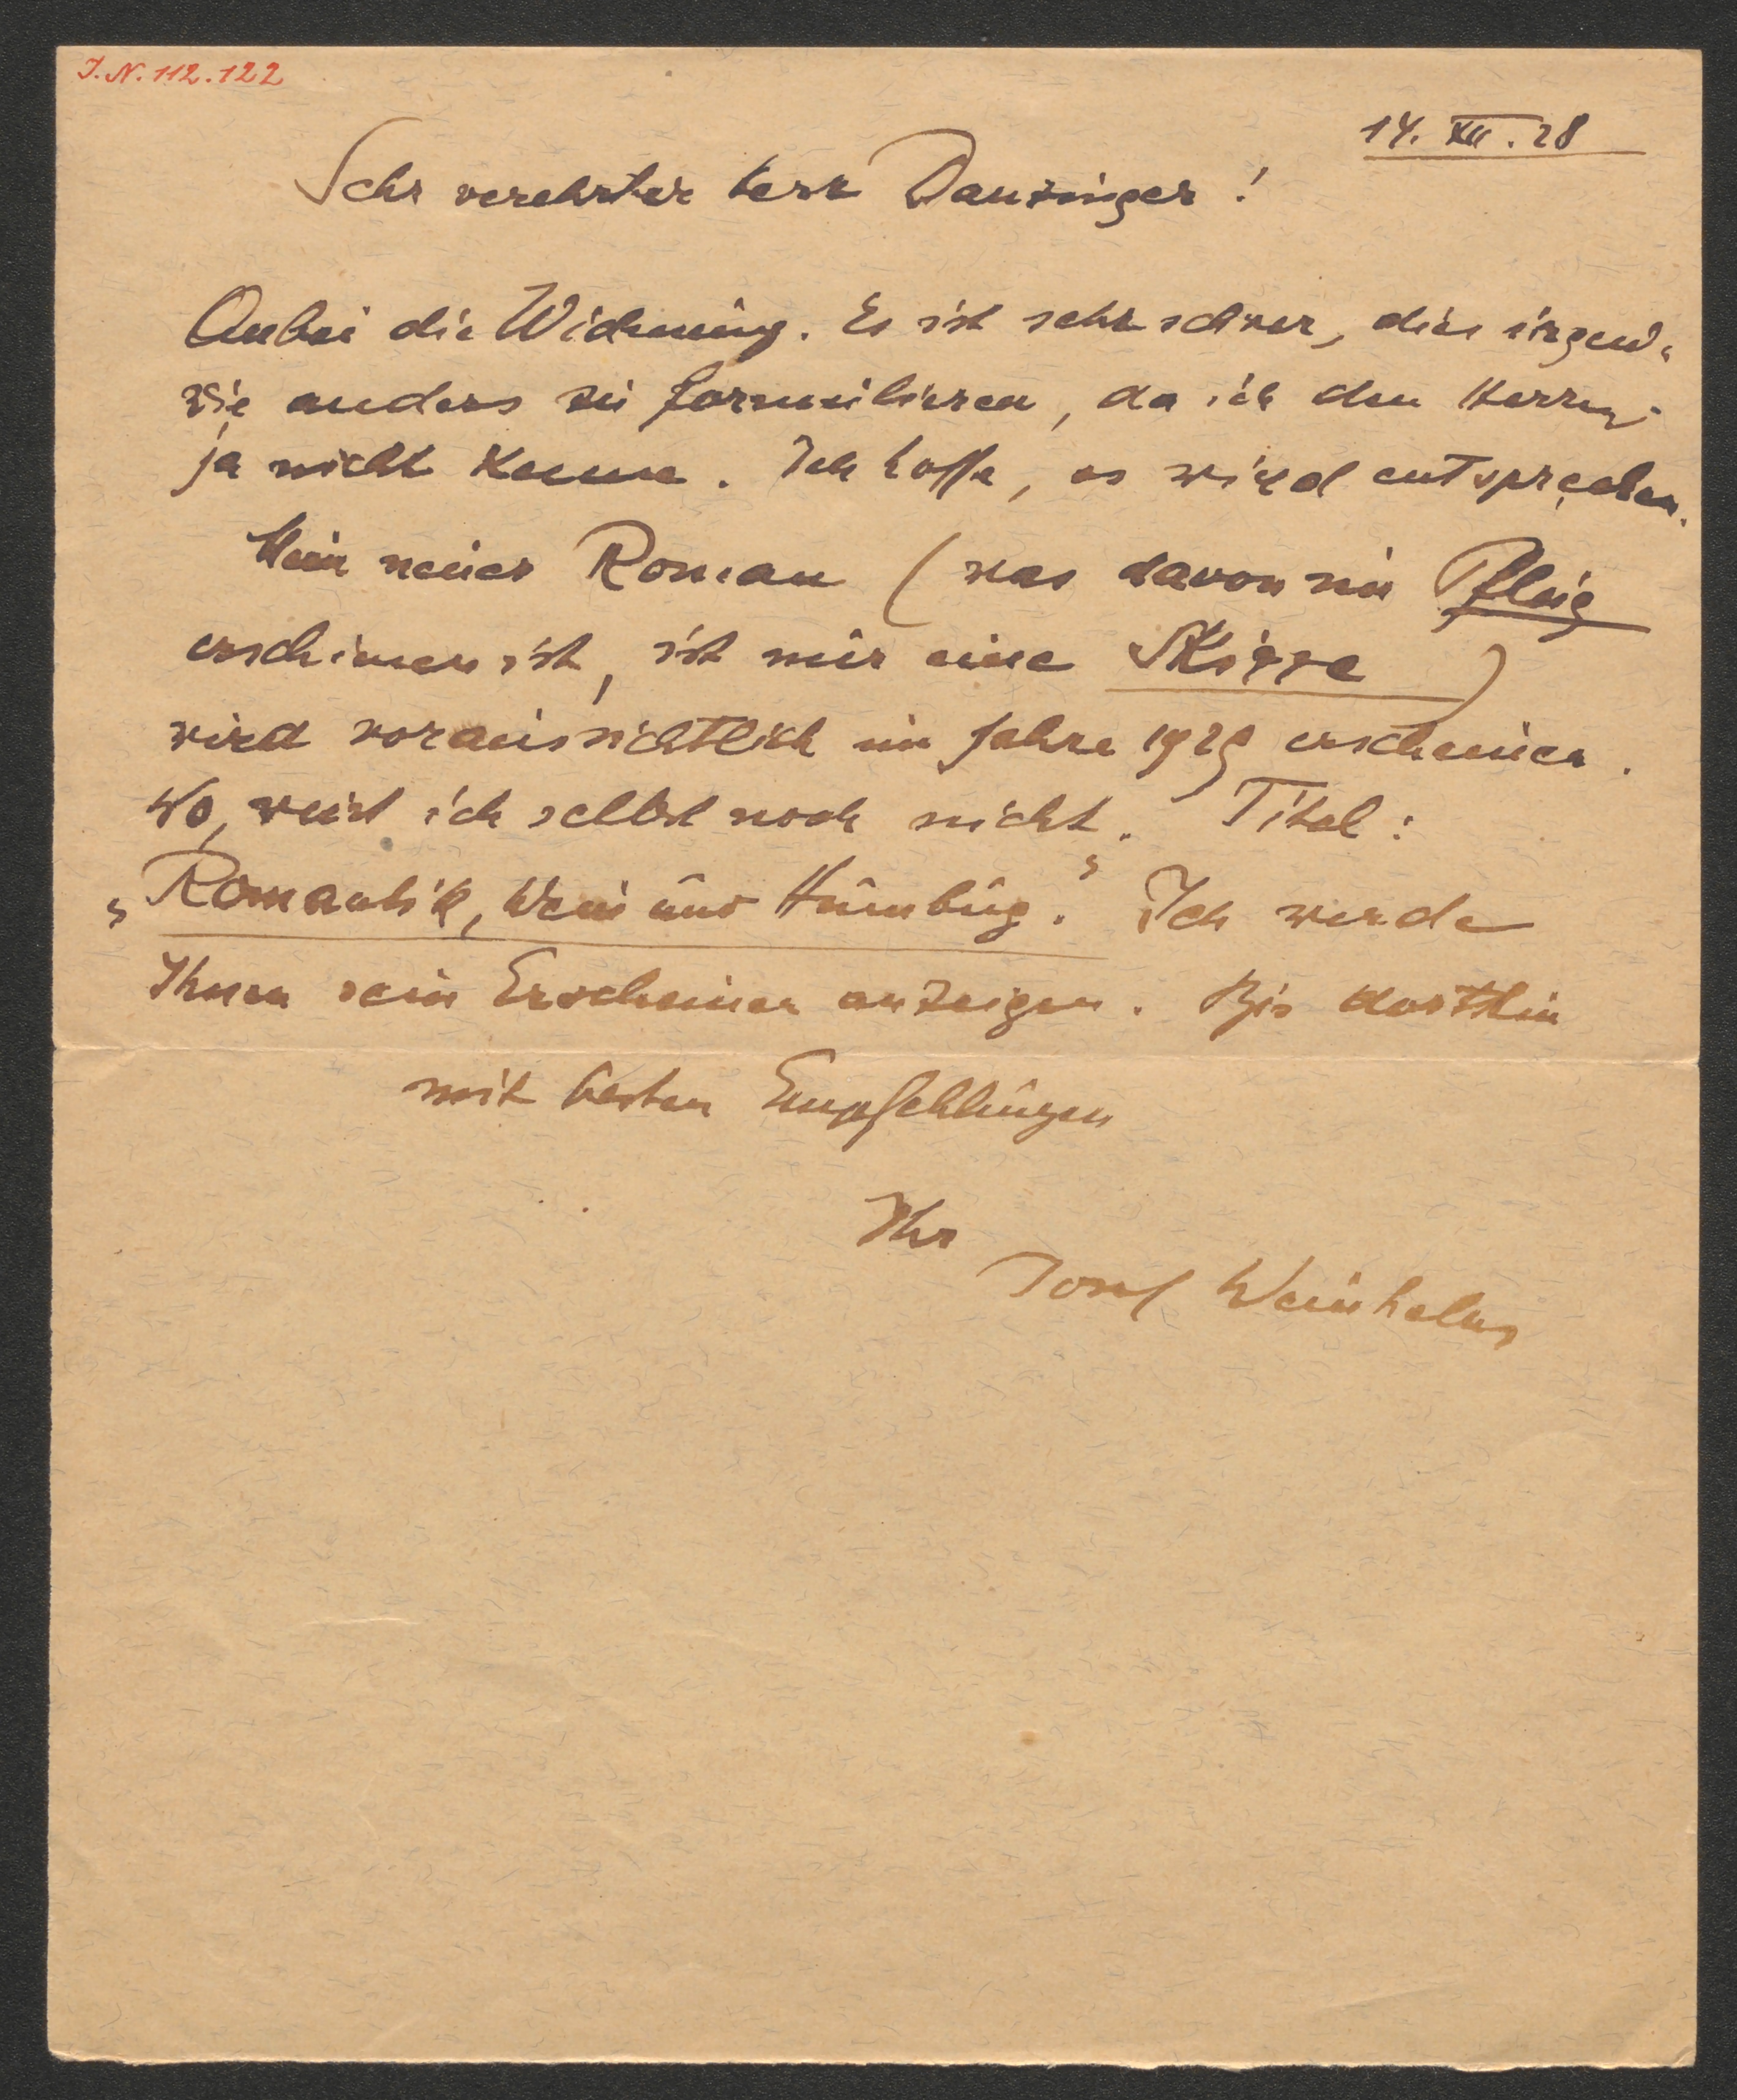 I.N. 112.122
14. XII. 28
Sehr verehrter Herr Danzinger!
Anbei die Widmung. Es ist sehr schwer, dies irgend-
wie anders zu formulieren, da ich den Herrn
ja nicht kenne. Ich hoffe, es wird entsprechen.
Mein neuer Roman (was davon im Pflug
erschienen ist, ist nur eine Skizze)
wird voraussichtlich im Jahre 1929 erscheinen.
Wo, weiß ich selbst noch nicht. Titel:
„Romantik, Wein und Humbug." Ich werde
Ihnen sein Erscheinen anzeigen. Bis dorthin
mit besten Empfehlungen
Ihr
Josef Weinheber